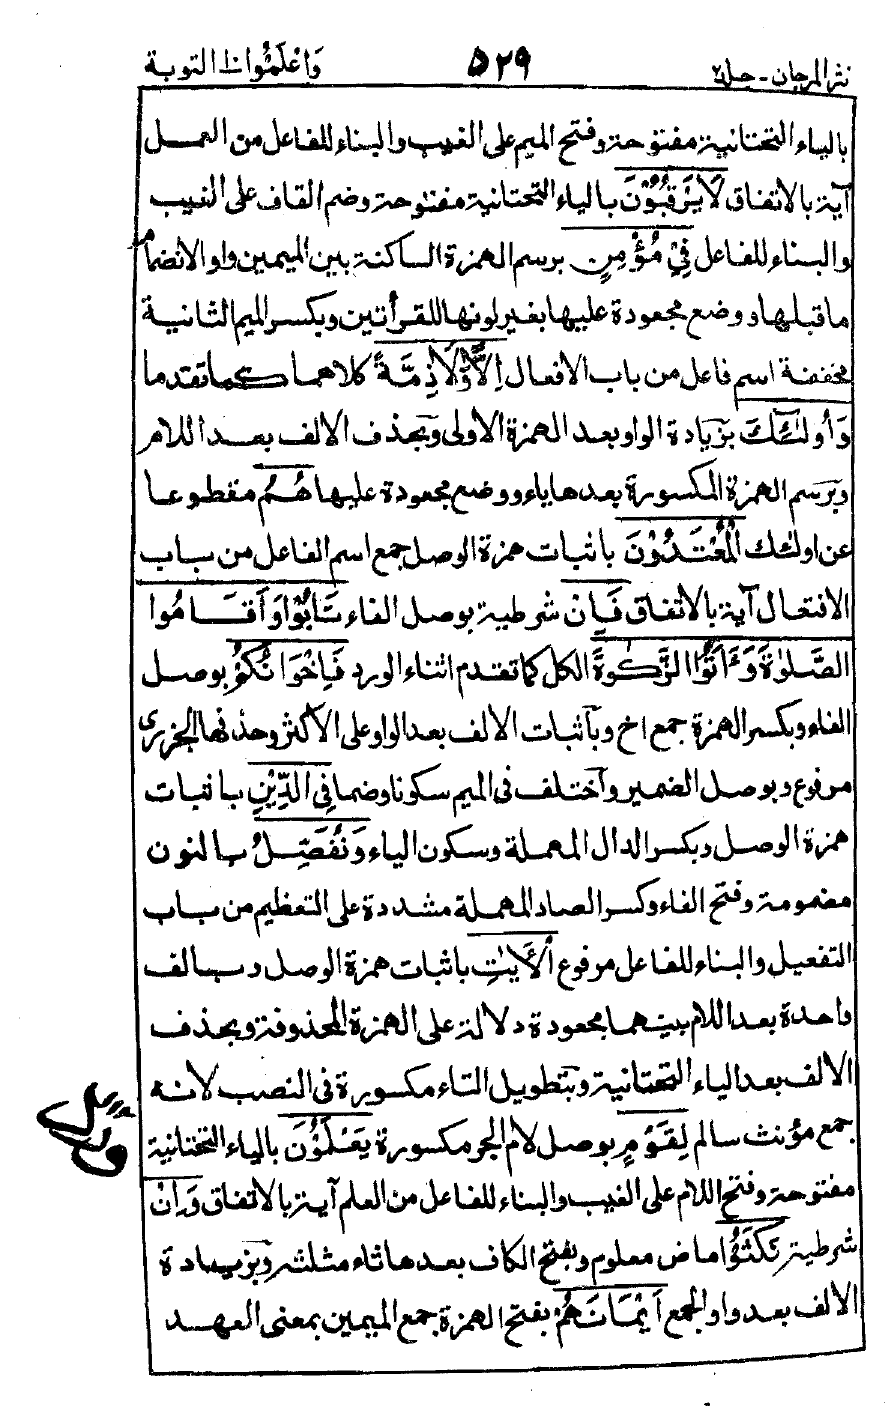 نثر المرجان - جلد ٢ ٥٢٩ وَاعْلَمُوْا ١٠ التوبة
بالياء التحتانية مفتوحة وفتح الميم على الغيب والبناء للفاعل من العمل
آية بالاتفاق لَا يَرْقُبُوْنَ بالياء التحتانية مفتوحة وضم القاف على الغيب
والبناء للفاعل فِيْ مُؤْمِنٍ برسم الهمزة الساكنة بين الميمين واو الانضمام
ما قبلها ووضع مجعودة عليها بغير لونها للقرأتين وبكسر الميم الثانية
مخففة اسم فاعل من باب الافعال اِلًّا وَّلَا ذِمَّةً كلاهما كما تقدما
وَاُولٰئِكَ بزيادة الواو بعد الهمزة الاولى وبحذف الالف بعد اللام
وبرسم الهمزة المكسورة بعدها ياء ووضع مجعودة عليها هُمُ مقطوعا
عن اولئك الْمُعْتَدُوْنَ باثبات همزة الوصل جمع اسم الفاعل من باب
الافتعال آية بالاتفاق فَاِنْ شرطية بوصل الفاء تَابُوْا وَاَقَامُوا
الصَّلٰوةَ وَءَاتَوُا الزَّكٰوةَ الكل كما تقدم اثناء الورد فَاِخْوَانُكُمْ بوصل
الفاء وبكسر الهمزة جمع اخ وباثبات الالف بعد الواو على الأكثر وحذفها الجزرى
مرفوع وبوصل الضمير واختلف في الميم سكونا وضما فِي الدِّيْنِ باثبات
همزة الوصل وبكسر الدال المهملة وسكون الياء وَنُفَصِّلُ بالنون
مضمومة وفتح الفاء وكسر الصاد المهملة مشددة على التعظيم من باب
التفعيل والبناء للفاعل مرفوع الْاٰيٰتِ باثبات همزة الوصل وبالف
واحدة بعد اللام بينهما مجعودة دلالة على الهمزة المحذوفة وبحذف
الالف بعد الياء التحتانية وبتطويل التاء مكسورة في النصب لانه
جمع مؤنث سالم لِقَوْمٍ بوصل لام الجر مكسورة يَعْلَمُوْنَ بالياء التحتانية
مفتوحة وفتح اللام على الغيب والبناء للفاعل من العلم آية بالاتفاق وَاِنْ
شرطية نَكَثُوْا ماض معلوم وبفتح الكاف بعدها ثاء مثلثة وبزيادة
الالف بعد واو الجمع اَيْمَانَهُمْ بفتح الهمزة جمع اليمين بمعنى العهد